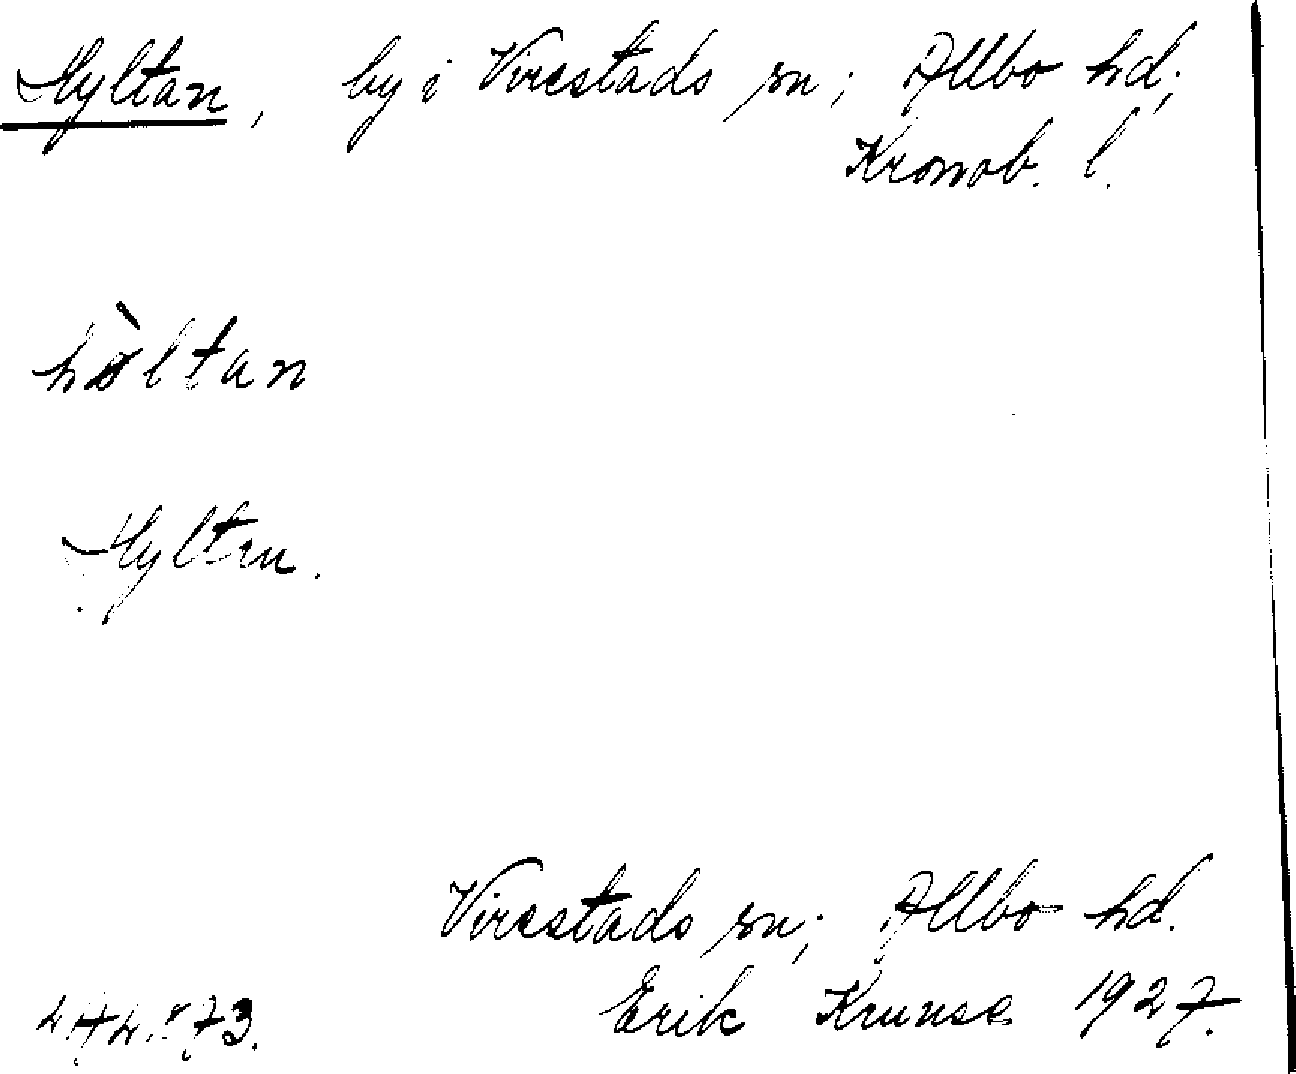 Hyltan, by i Virestads sn; Allbo hd;
Kronob. l.
hòltan
Hyltan.
Virestads sn; Allbo hd.
Erik Kruuse 1927.